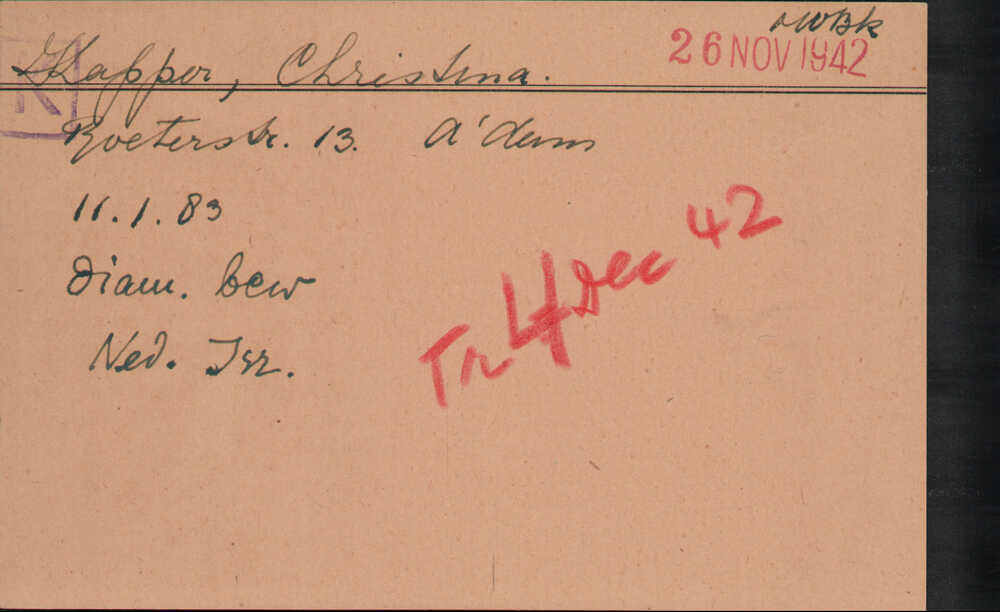 MWBk
Klapper, Christina.
26 NOV 1942
Roeterstr. 13. A'dam
11.1.83
Diam. bew
Ned. Isr.
Tr 4 Dec 42